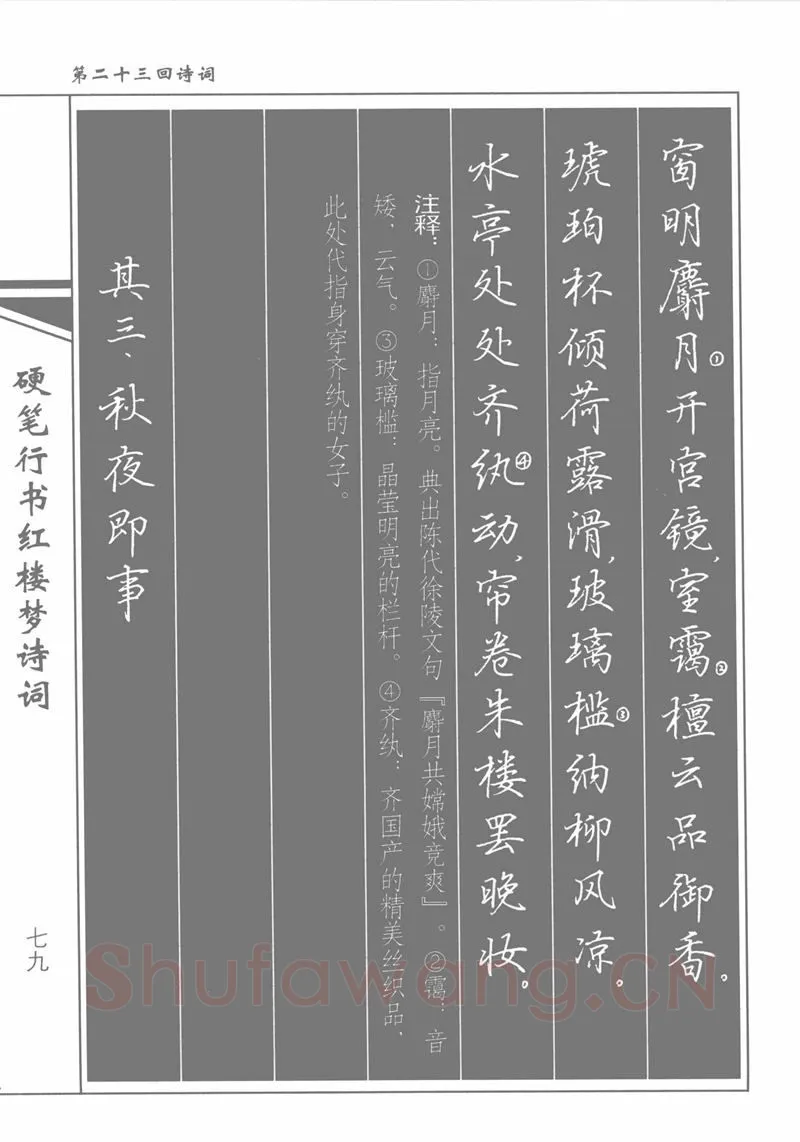 第二十三回诗词
窗明麝月①开宫镜，室霭②檀云品御香。
琥珀杯倾荷露滑，玻璃槛③纳柳风凉。
水亭处处齐纨④动，帘卷朱楼罢晚妆。
注释：①麝月：指月亮。典出陈代徐陵文句『麝月共嫦娥竞爽』。②霭：音
矮，云气。③玻璃槛：晶莹明亮的栏杆。④齐纨：齐国产的精美丝织品，
此处代指身穿齐纨的女子。
其三、秋夜即事
硬笔行书红楼梦诗词
七九
Shufawang.CN